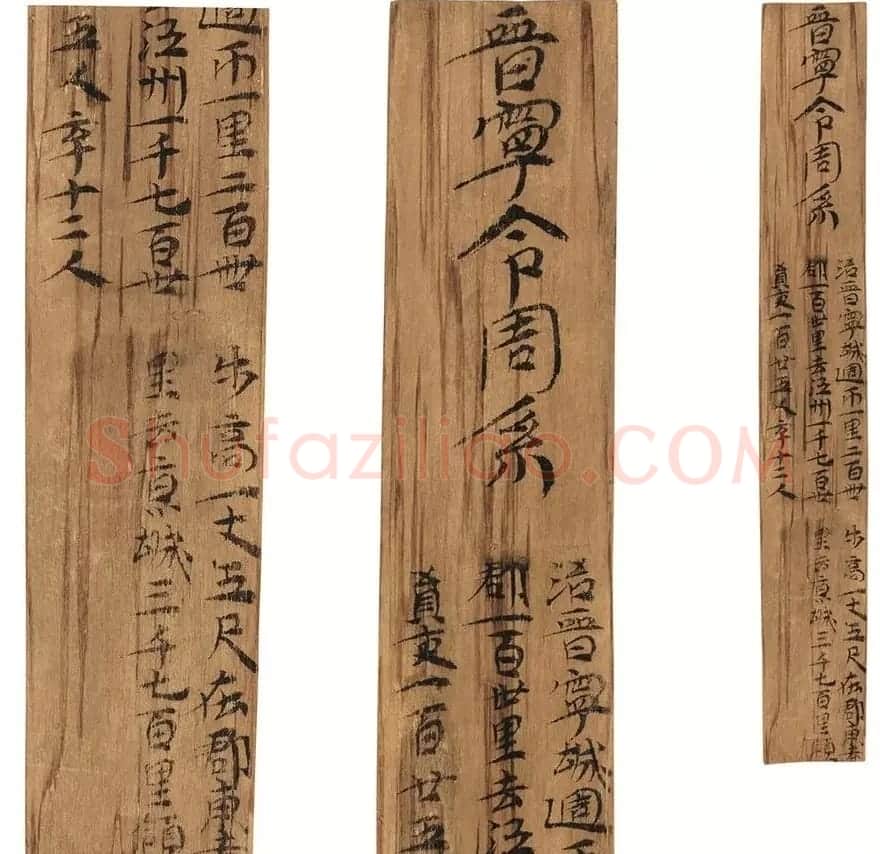 晉寧令周系
治晉寧城週帀一里二百卌步高一丈五尺在郡東去
郡一百卅里去江州一千七百卌里去京城三千七百里領
員吏一百廿五人卒十二人
晉寧令周系
治晉寧城週帀
郡一百卅里去江
員吏一百廿五
週帀一里二百卌步高一丈五尺在郡東去
江州一千七百卌里去京城三千七百里領
五人卒十二人
Shufaziliao.COM